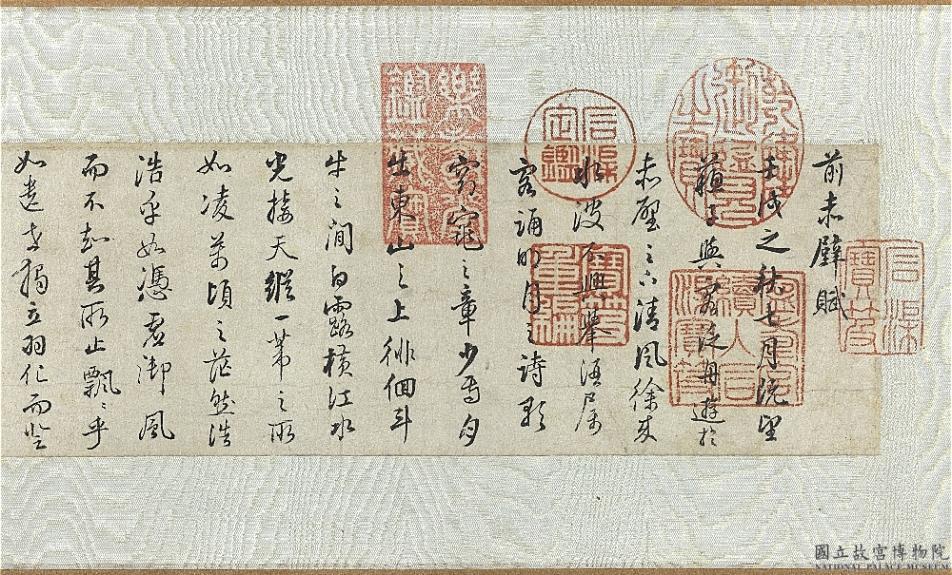 前赤壁賦
壬戌之秋七月既望
蘇子與客泛舟遊於
赤壁之下清風徐來
水波不興舉酒屬
客誦明月之詩歌
窈窕之章少焉月
出東山之上徘徊斗
牛之間白露橫江水
光接天縱一葦之所
如凌萬頃之茫然浩
浩乎如憑虛御風
而不知其所止飄飄乎
如遺世獨立羽化而登
石渠寶笈
嘉慶御覽之寶
寧壽宮續入石渠寶笈
石渠定鑑
寶笈重編
國立故宮博物院
NATIONAL PALACE MUSEUM